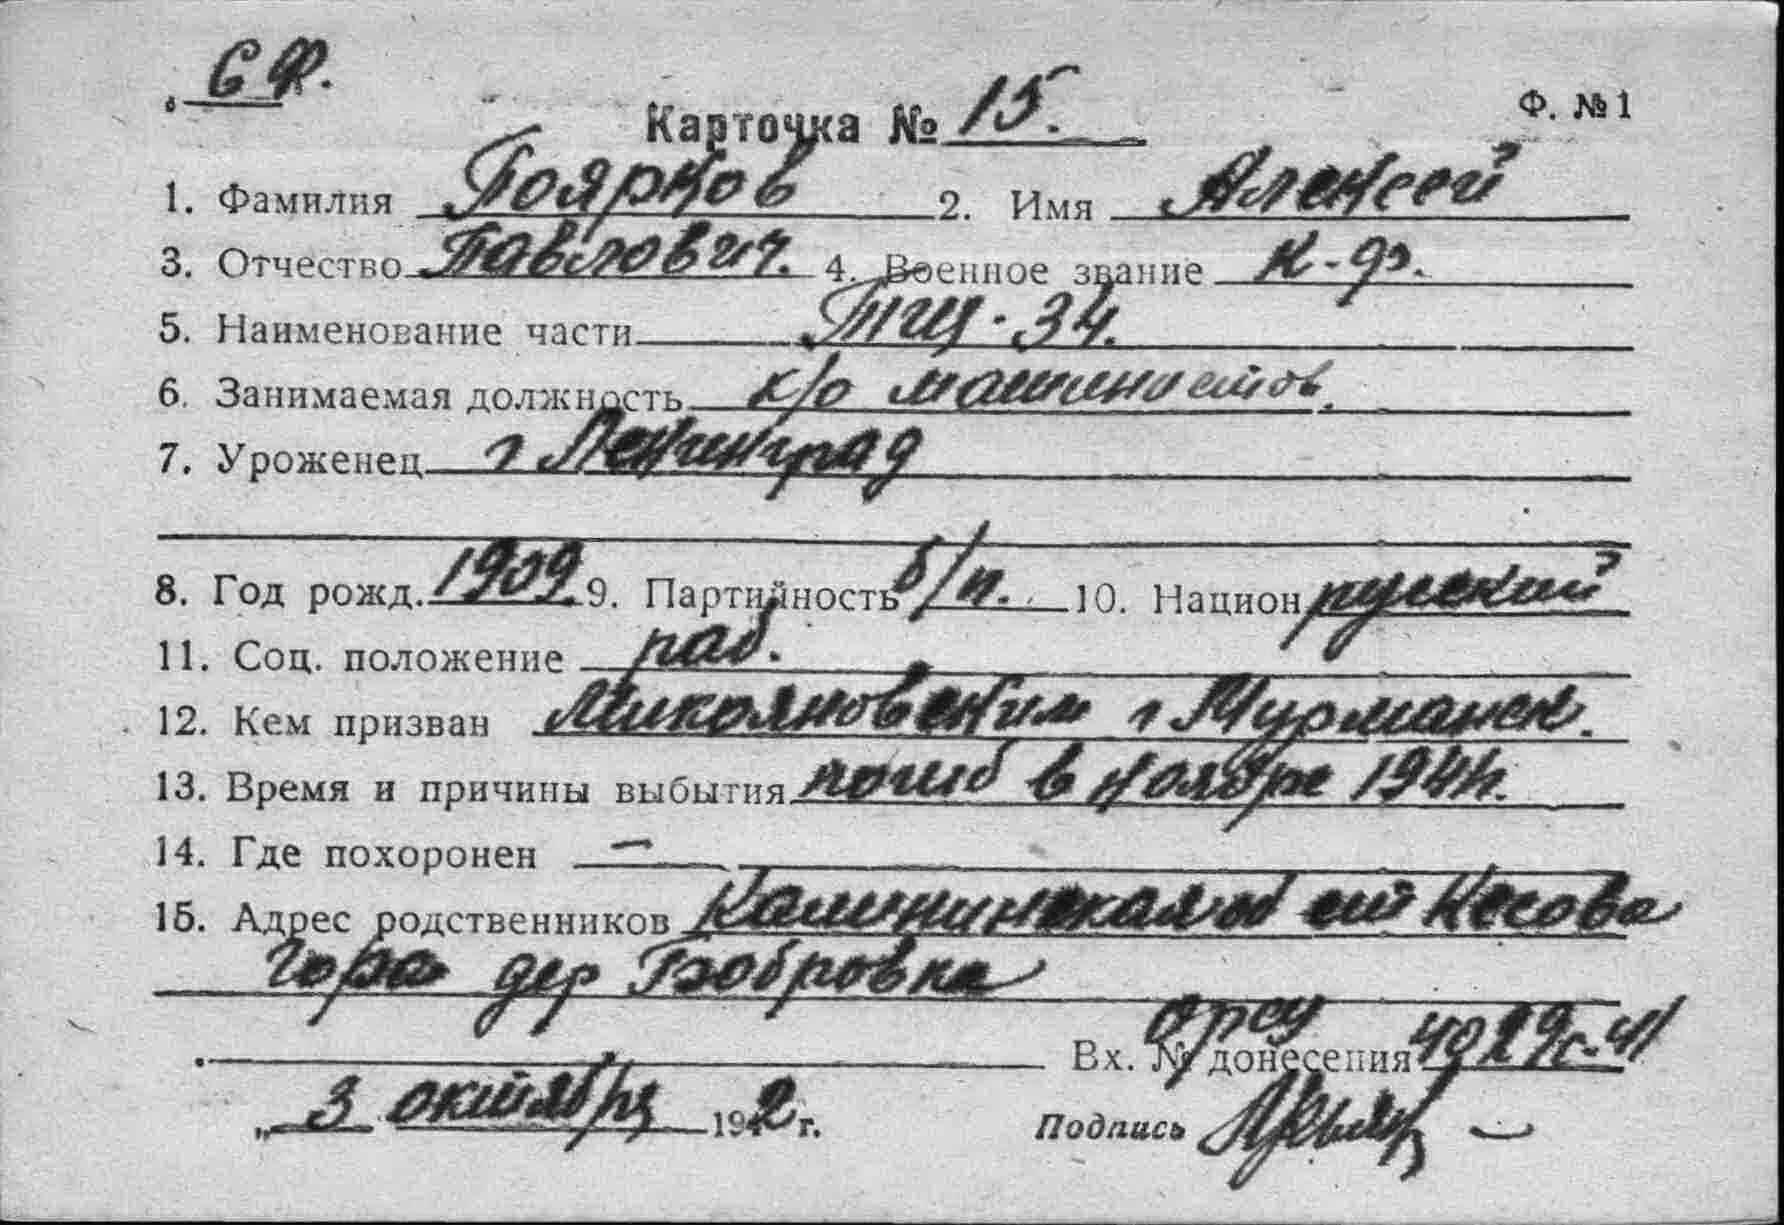 СФ.
Карточка № 15. Ф. № 1
1. Фамилия Боярков 2. Имя Алексей
3. Отчество Павлович. 4. Военное звание к-ф.
5. Наименование части ТЩ-34.
6. Занимаемая должность к/о машинистов.
7. Уроженец г Ленинград
8. Год рожд. 1909 9. Партийность б/п. 10. Национ русский
11. Соц. положение раб.
12. Кем призван Микояновским г Мурманск.
13. Время и причины выбытия погиб в ноябре 1941г.
14. Где похоронен —
15. Адрес родственников Калининская об ст Кесова
Гора дер Бобровка
орсу
Вх. № донесения 4029с-41
„ 3 октября 1942 г. Подпись